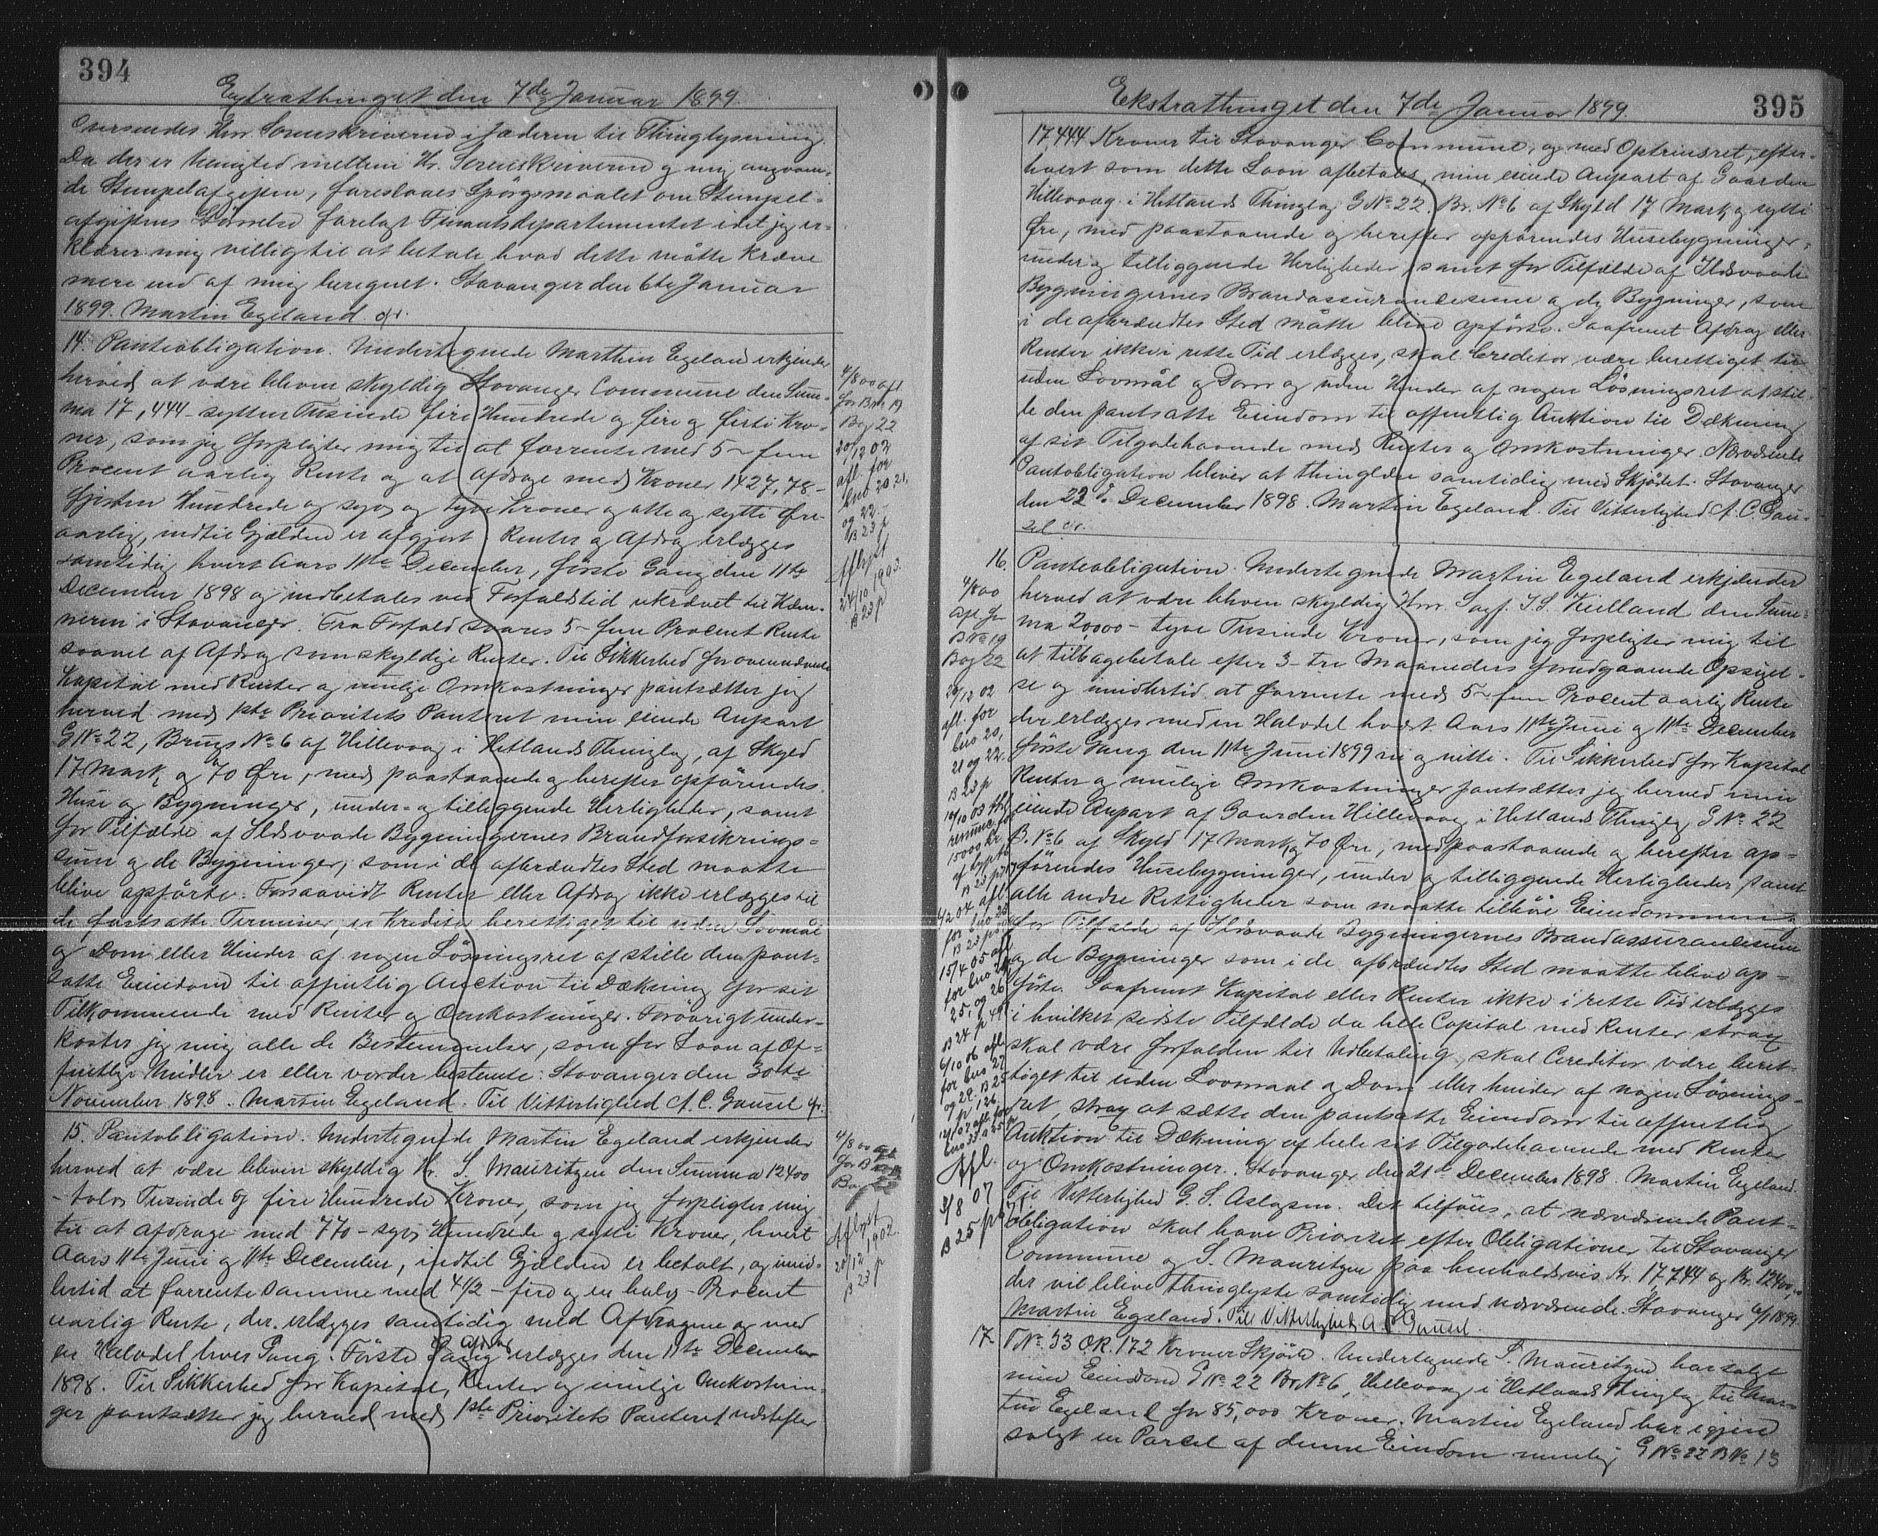 394
Extrathinget den 7de Januar 1899.
Oversendes Hrr Sorenskriveren i Jæderen til Thinglysning.
Da der er Uenighed mellem Hr. Sorenskriveren og mig angaaen-
de Stempelafgiften, foreslaaes Spörgsmaalet om Stempel-
afgiftens Störrelse forelagt Finantsdepartementet idet jeg er-
klærer mig villig til at betale hvad dette måtte kræve
mere end af mig beregnet. Stavanger den 6te Januar
1899. Martin Egeland
14. Panteobligation. Undertegnede Marthin Egeland erkjender
herved at være bleven skyldig Stavanger Commune den Sum-
ma 17,444 - sytten Tusinde fire Hundrede og fire og firti Kro-
ner, som jeg forpligter mig til at forrente med 5 - fem
Procent aarlig Rente og at afdrage med Kroner 1427,78 -
fjorten Hundrede og syv og tyve Kroner og otte og sytti Øre -
aarlig, indtil Gjælden er afgjort. Renter og Afdrag erlægges
samtidig hvert Aars 11te December, förste Gang den 11te
December 1898 og indbetales ved Forfaldstid ukrævet til Kæm-
neren i Stavanger. Fra Forfald svares 5 - fem Procent Rente
saavel af Afdrag som skyldige Renter. Til Sikkerhed for ovennævnte
Kapital med Renter og mulige Omkostninger pantsætter jeg
herved med 1ste Prioritets Panteret min eiende Anpart
G No 22, Brugs No 6 af Hillevaag i Hetlands Thinglag, af Skyld
17 Mark og 70 Øre, med paastaaende og herefter opförendes
Huse og Bygninger, under- og tilliggende Herligheder, samt
for Tilfælde af Ildsvaade Bygningernes Brandforsikrings-
sum og de Bygninger, som i de afbrændtes Sted maatte
blive opförte. Forsaavidt Renter eller Afdrag ikke erlægges til
de fastsatte Terminer, er Kreditor berettiget til uden Lovmål
og Dom eller Hinder af nogen Lösningsret at stille den pant-
satte Eiendom til offentlig Auction til Dækning for sit
Tilkommende med Renter og Omkostninger. Forövrigt under-
kaster jeg mig alle de Bestemmelser, som for Laan af Of-
fentlige Midler er eller vorder bestemte. Stavanger den 30te
November 1898. Martin Egeland. Til Vitterlighed A. C. Gausel
4/8 00 afl
for Br No 19
Bog 22
20/12 02
afl for
bno 20 21,
og 22
B 23 p
Aflyst
24/10 1903.
B 23 p
15. Pantobligation. Undertegnede Martin Egeland erkjender
herved at være bleven skyldig Hr. S. Mauritzen den Summa 12400
- tolv Tusinde og fire Hundrede Kroner, som jeg forpligter mig
til at afdrage med 770 - syv Hundrede og sytti Kroner, hvert
Aars 11te Juni og 11te December, indtil Gjælden er betalt, og imid-
lertid at forrente samme med 4 1/2 - fire og en halv - Procent
aarlig Rente, der erlægges samtidig med Afdragene og med
en Halvdel hver Gang. Förste Gang Afdrag erlægges den 11te December
1898. Til Sikkerhed for Kapital, Renter og mulige Omkostnin-
ger pantsætter jeg herved med 1ste Prioritets Panteret næstefter
4/8 00
for B
Bog 22
Aflyst
20/12 1902.
B 23 p
395
Ekstrathinget den 7de Januar 1899.
17,444 Kroner til Stavanger Commune, og med Optrinsret, efter-
hvert som dette Laan afbetales, min eiende Anpart af Gaarden
Hillevaag i Hetlands Thinglag G No 22, Br. No 6 af Skyld 17 Mark og sytti
Øre, med paastaaende og herefter opförendes Husebygninger,
under og tilliggende Herligheder, samt for Tilfælde af Ildsvaade
Bygningernes Brandassurancesum og de Bygninger, som
i de afbrændtes Sted måtte blive opförte. Saafremt Afdrag eller
Renter ikke i rette Tid erlægges, skal Creditor være berettiget til
uden Lovmål og Dom og uden Hinder af nogen Lösningsret at stil-
le den pantsatte Eiendom til offentlig Auktion til Dækning
af sit Tilgodehavende med Renter og Omkostninger. Nærværende
Pantobligation bliver at thinglæse samtidig med Skjödet. Stavanger
den 23d December 1898. Martin Egeland. Til Vitterlighed A. C. Gau-
sel
16. Panteobligation. Undertegnede Martin Egeland erkjender
herved at være bleven skyldig Hrr. Sagf. J. S. Kielland den Sum-
ma 20000 - tyve Tusinde Kroner, som jeg forpligter mig til
at tilbagebetale efter 3 - tre Maaneders forudgaaende Opsigel-
se og imidlertid at forrente med 5 - fem Procent aarlig Rente
der erlægges med en Halvdel hvert Aars 11te Juni og 11te December
förste Gang den 11te Juni 1899 ni og nitti. Til Sikkerhed for Kapital
Renter og mulige Omkostninger pantsætter jeg herved min
eiende Anpart af Gaarden Hillevaag i Hetlands Thinglag G No 22
B. No 6 af Skyld 17 Mark og 70 Øre, med paastaaende og herefter op-
förendes Husebygninger, under og tilliggende Herligheder samt
alle andre Rettigheder som maatte tilhöre Eiendommen
for Tilfælde af Ildsvaade Bygningernes Brandassurancesum
og de Bygninger som i de afbrændtes Sted maatte blive op-
förte. Saafremt Kapital eller Renter ikke i rette Tid erlægges
i hvilket sidste Tilfælde da hele Capital med Renter strax
skal være forfalden til Udbetaling, skal Creditor være beret-
tiget til uden Lovmaal og Dom eller hinder af nogen Lösnings-
ret, strax at sætte den pantsatte Eiendom til offentlig
Auktion til Dækning af hele sit Tilgodehavende med Renter
og Omkostninger. Stavanger den 21de December 1898. Martin Egeland.
Til Vitterlighed G. S. Aslagsen. Det tilföies, at nærværende Pant-
obligation skal have Prioritet efter Obligationer til Stavanger
Commune og S. Mauritzen paa henholdsvis Kr. 17744 og Kr. 12400
der vil blive thinglyste samtidig med nærværende. Stavanger 6/1 1899.
Martin Egeland. Til Vitterlighed A. C. Gausel.
4/8 00
afl for
B No 19
Bog 22
20/12 02
afl. for
bno 20,
21 og 22.
B 23 p
15000 kr
B 23 p
for bno 23
B 23 p
15/4 05 afl
for bno 24
25, og 26
B 24 p 49
6/10 06 afl
for bno 27
og 29. B 25
p 126
Afl.
3/8 07
B 25 p
17. T. No 33 O.K. 172 Kroner Skjöde. Undertegnede S. Mauritzen har solgt
min Eiendom G No 22 Br. No 6, Hillevaag i Hetlands Thinglag til Mar-
tin Egeland for 85,000 Kroner. Martin Egeland har igjen
solgt en Parcel af denne Eiendom nemlig G No 22 B No 13